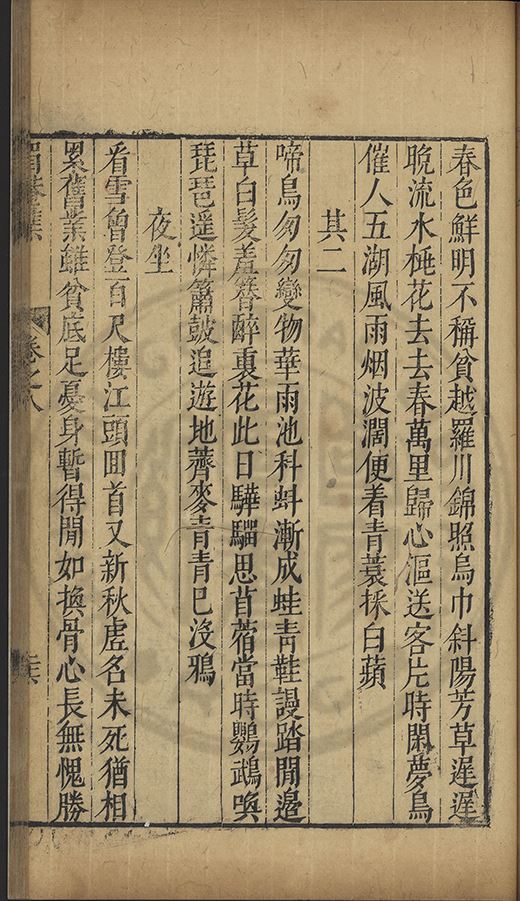 春色鮮明不稱貧越羅川錦照烏巾斜陽芳草遲遲
晩流水桃花去去春萬里歸心漚送客片時閑夢鳥
催人五湖風雨烟波濶便着青蓑採白蘋
其二
啼鳥匆匆變物華雨池科蚪漸成蛙青鞋謾踏閒邊
草白髮羞簪醉裏花此日驊騮思苜蓿當時鸚鵡喚
琵琶遥憐簫鼓追遊地薺麥青青已没鴉
夜坐
看雪曾登百尺樓江頭囬首又新秋虚名未死猶相
累舊業雖貧底足憂身暫得閒如換骨心長無愧勝
卷之八